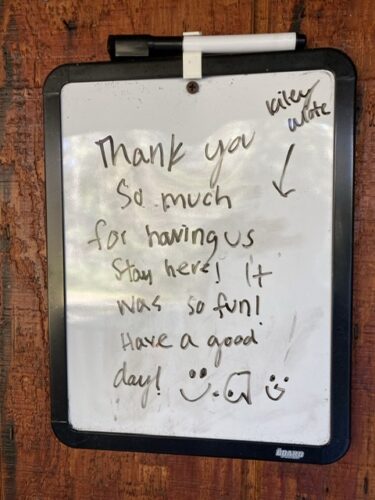 Kiley
wrote
Thank you
So much
for having us
Stay here! It
was so fun!
Have a good
day!